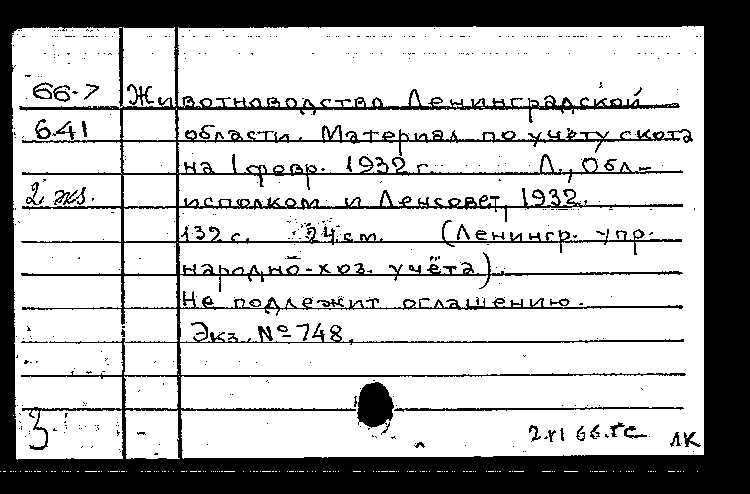 66-7 Животноводство Ленинградской
641 области. Материал по учёту скота
на 1 февр. 1932 г. Л., Обл-
2 экз. исполком и Ленсовет, 1932.
132 с. 24 см. (Ленингр. упр.
народно-хоз. учёта).
Не подлежит оглашению.
Экз. № 748.
3
2.XI 66. ГС ЛК